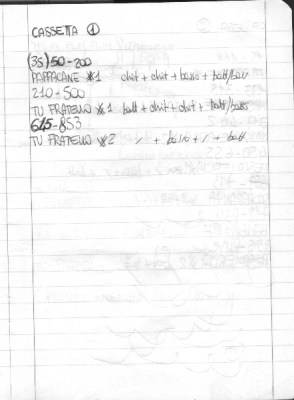 CASSETTA ①
(35) 50-200
PAPPACANE *1 chit + chit + basso + batt/bass
210-500
TU FRATELLO *1 batt + chit + chit + batt/bass
615-853
TU FRATELLO *2 / + basso + / + batt.